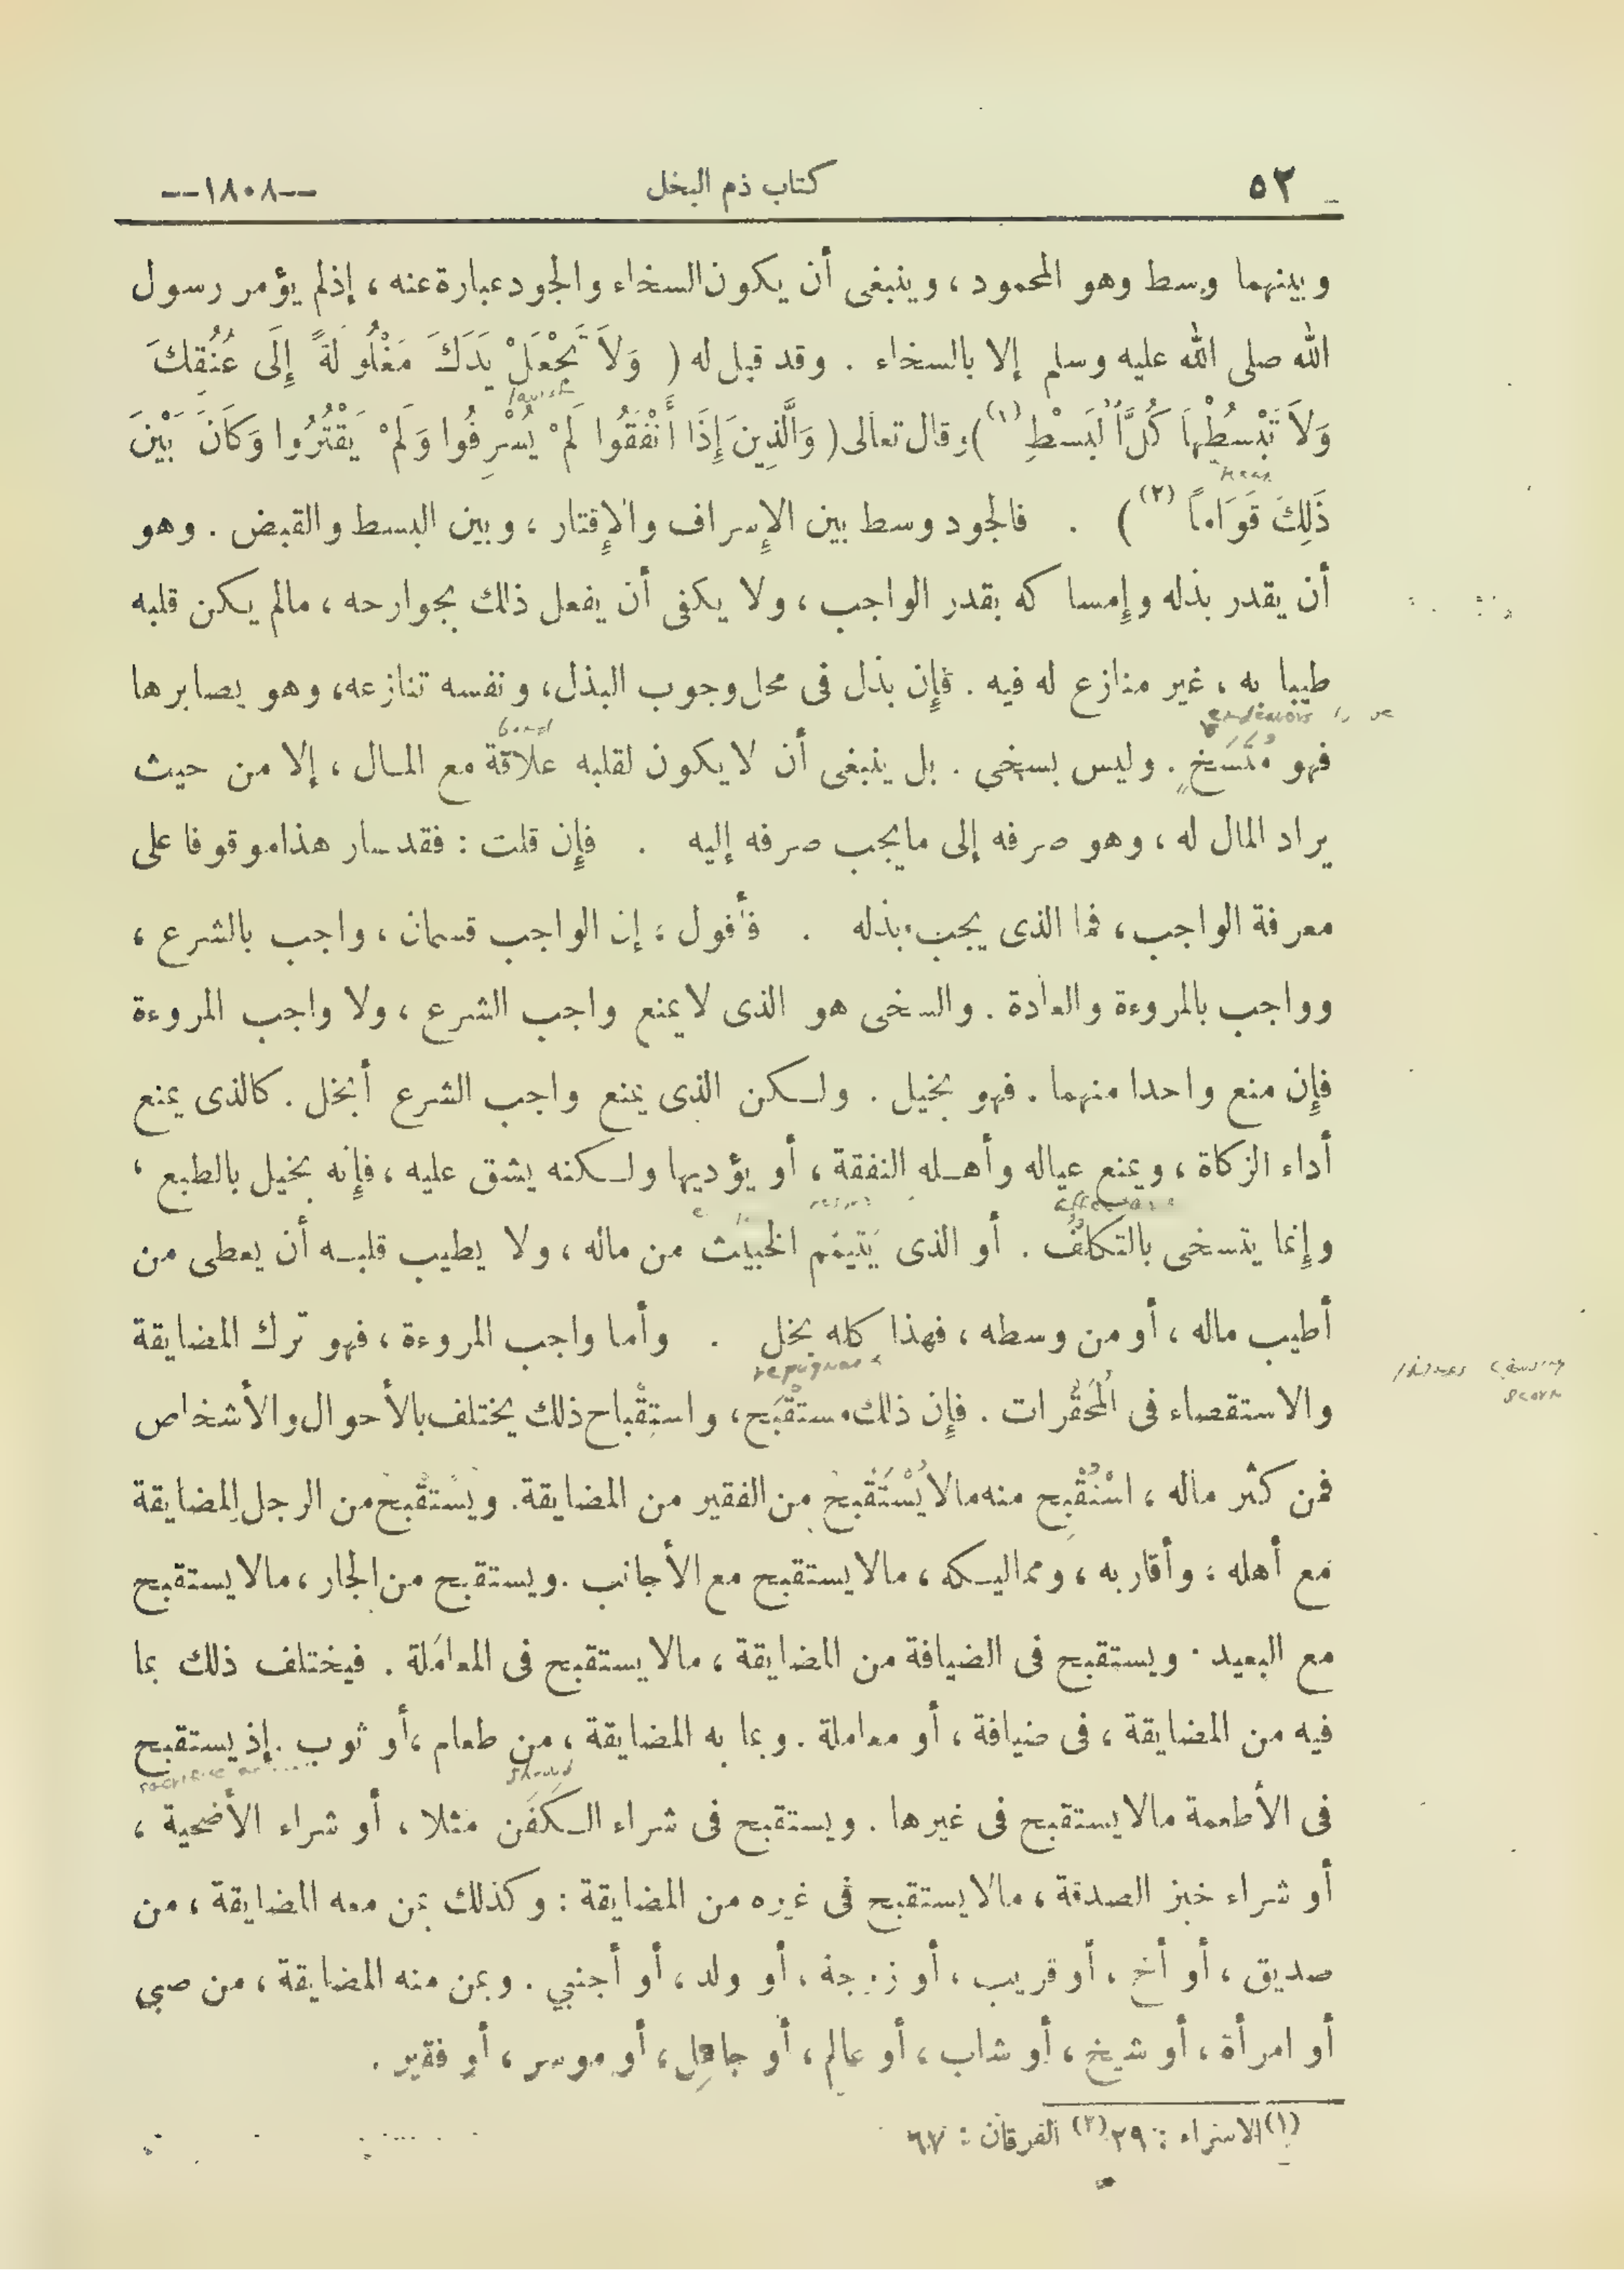 ٥٢ كتاب ذم البخل --١٨٠٨--
وبينهما وسط وهو المحمود ، وينبغى أن يكون السخاء والجود عبارة عنه ، إذ لم يؤمر رسول
الله صلى الله عليه وسلم إلا بالسخاء . وقد قيل له ( وَلاَ تَجْعَلْ يَدَكَ مَغْلُولَةً إِلَى عُنُقِكَ
lavish
وَلاَ تَبْسُطْهَا كُلَّ الْبَسْطِ (١) ) وقال تعالى ( وَالَّذِينَ إِذَا أَنْفَقُوا لَمْ يُسْرِفُوا وَلَمْ يَقْتُرُوا وَكَانَ بَيْنَ
mean
ذَلِكَ قَوَاماً (٢) ) . فالجود وسط بين الإِسراف والإِقتار ، وبين البسط والقبض . وهو
أن يقدر بذله وإِمساكه بقدر الواجب ، ولا يكفى أن يفعل ذلك بجوارحه ، مالم يكن قلبه
طيبا به ، غير منازع له فيه . فإِن بذل فى محل وجوب البذل ، ونفسه تنازعه ، وهو يصابرها
bond
فهو متسَخٍ . وليس بسخي . بل ينبغى أن لا يكون لقلبه علاقة مع المال ، إلا من حيث
يراد المال له ، وهو صرفه إلى مايجب صرفه إليه . فإِن قلت : فقد سار هذا موقوفا على
معرفة الواجب ، فما الذى يجب بذله . فأقول : إن الواجب قسمان ، واجب بالشرع ،
وواجب بالمروءة والعادة . والسخى هو الذى لا يمنع واجب الشرع ، ولا واجب المروءة
فإِن منع واحدا منهما . فهو بخيل . ولكن الذى يمنع واجب الشرع أبخل . كالذى يمنع
أداء الزكاة ، ويمنع عياله وأهله النفقة ، أو يؤديها ولكنه يشق عليه ، فإِنه بخيل بالطبع ،
وإِنما يتسخى بالتكلف . أو الذى يَتيمم الخبيث من ماله ، ولا يطيب قلبه أن يعطى من
أطيب ماله ، أو من وسطه ، فهذا كله بخل . وأما واجب المروءة ، فهو ترك المضايقة
والاستقصاء فى المُحَقَّرات . فإِن ذلك مستقْبَح ، واستِقْباح ذلك يختلف بالأحوال والأشخاص
scorn
فمن كثر ماله ، اسْتُقْبِح منه مالا يُسْتَقْبح من الفقير من المضايقة . ويُستقْبح من الرجل المضايقة
مع أهله ، وأقاربه ، ومماليكه ، مالا يستقبح مع الأجانب . ويستقبح من الجار ، مالا يستقبح
مع البعيد . ويستقبح فى الضيافة من المضايقة ، مالا يستقبح فى المعامَلة . فيختلف ذلك بما
فيه من المضايقة ، فى ضيافة ، أو معاملة . وبما به المضايقة ، من طعام ، أو ثوب . إذ يستقبح
shroud
فى الأطعمة مالا يستقبح فى غيرها . ويستقبح فى شراء الكَفَن مثلا ، أو شراء الأضحية ،
أو شراء خبز الصدقة ، مالا يستقبح فى غيره من المضايقة : وكذلك بمن معه المضايقة ، من
صديق ، أو أخ ، أو قريب ، أو زوجة ، أو ولد ، أو أجنبي . وبمن منه المضايقة ، من صبي
أو امرأة ، أو شيخ ، أو شاب ، أو عالم ، أو جاهل ، أو موسر ، أو فقير .
(١) الاسراء : ٢٩ (٢) الفرقان : ٦٧